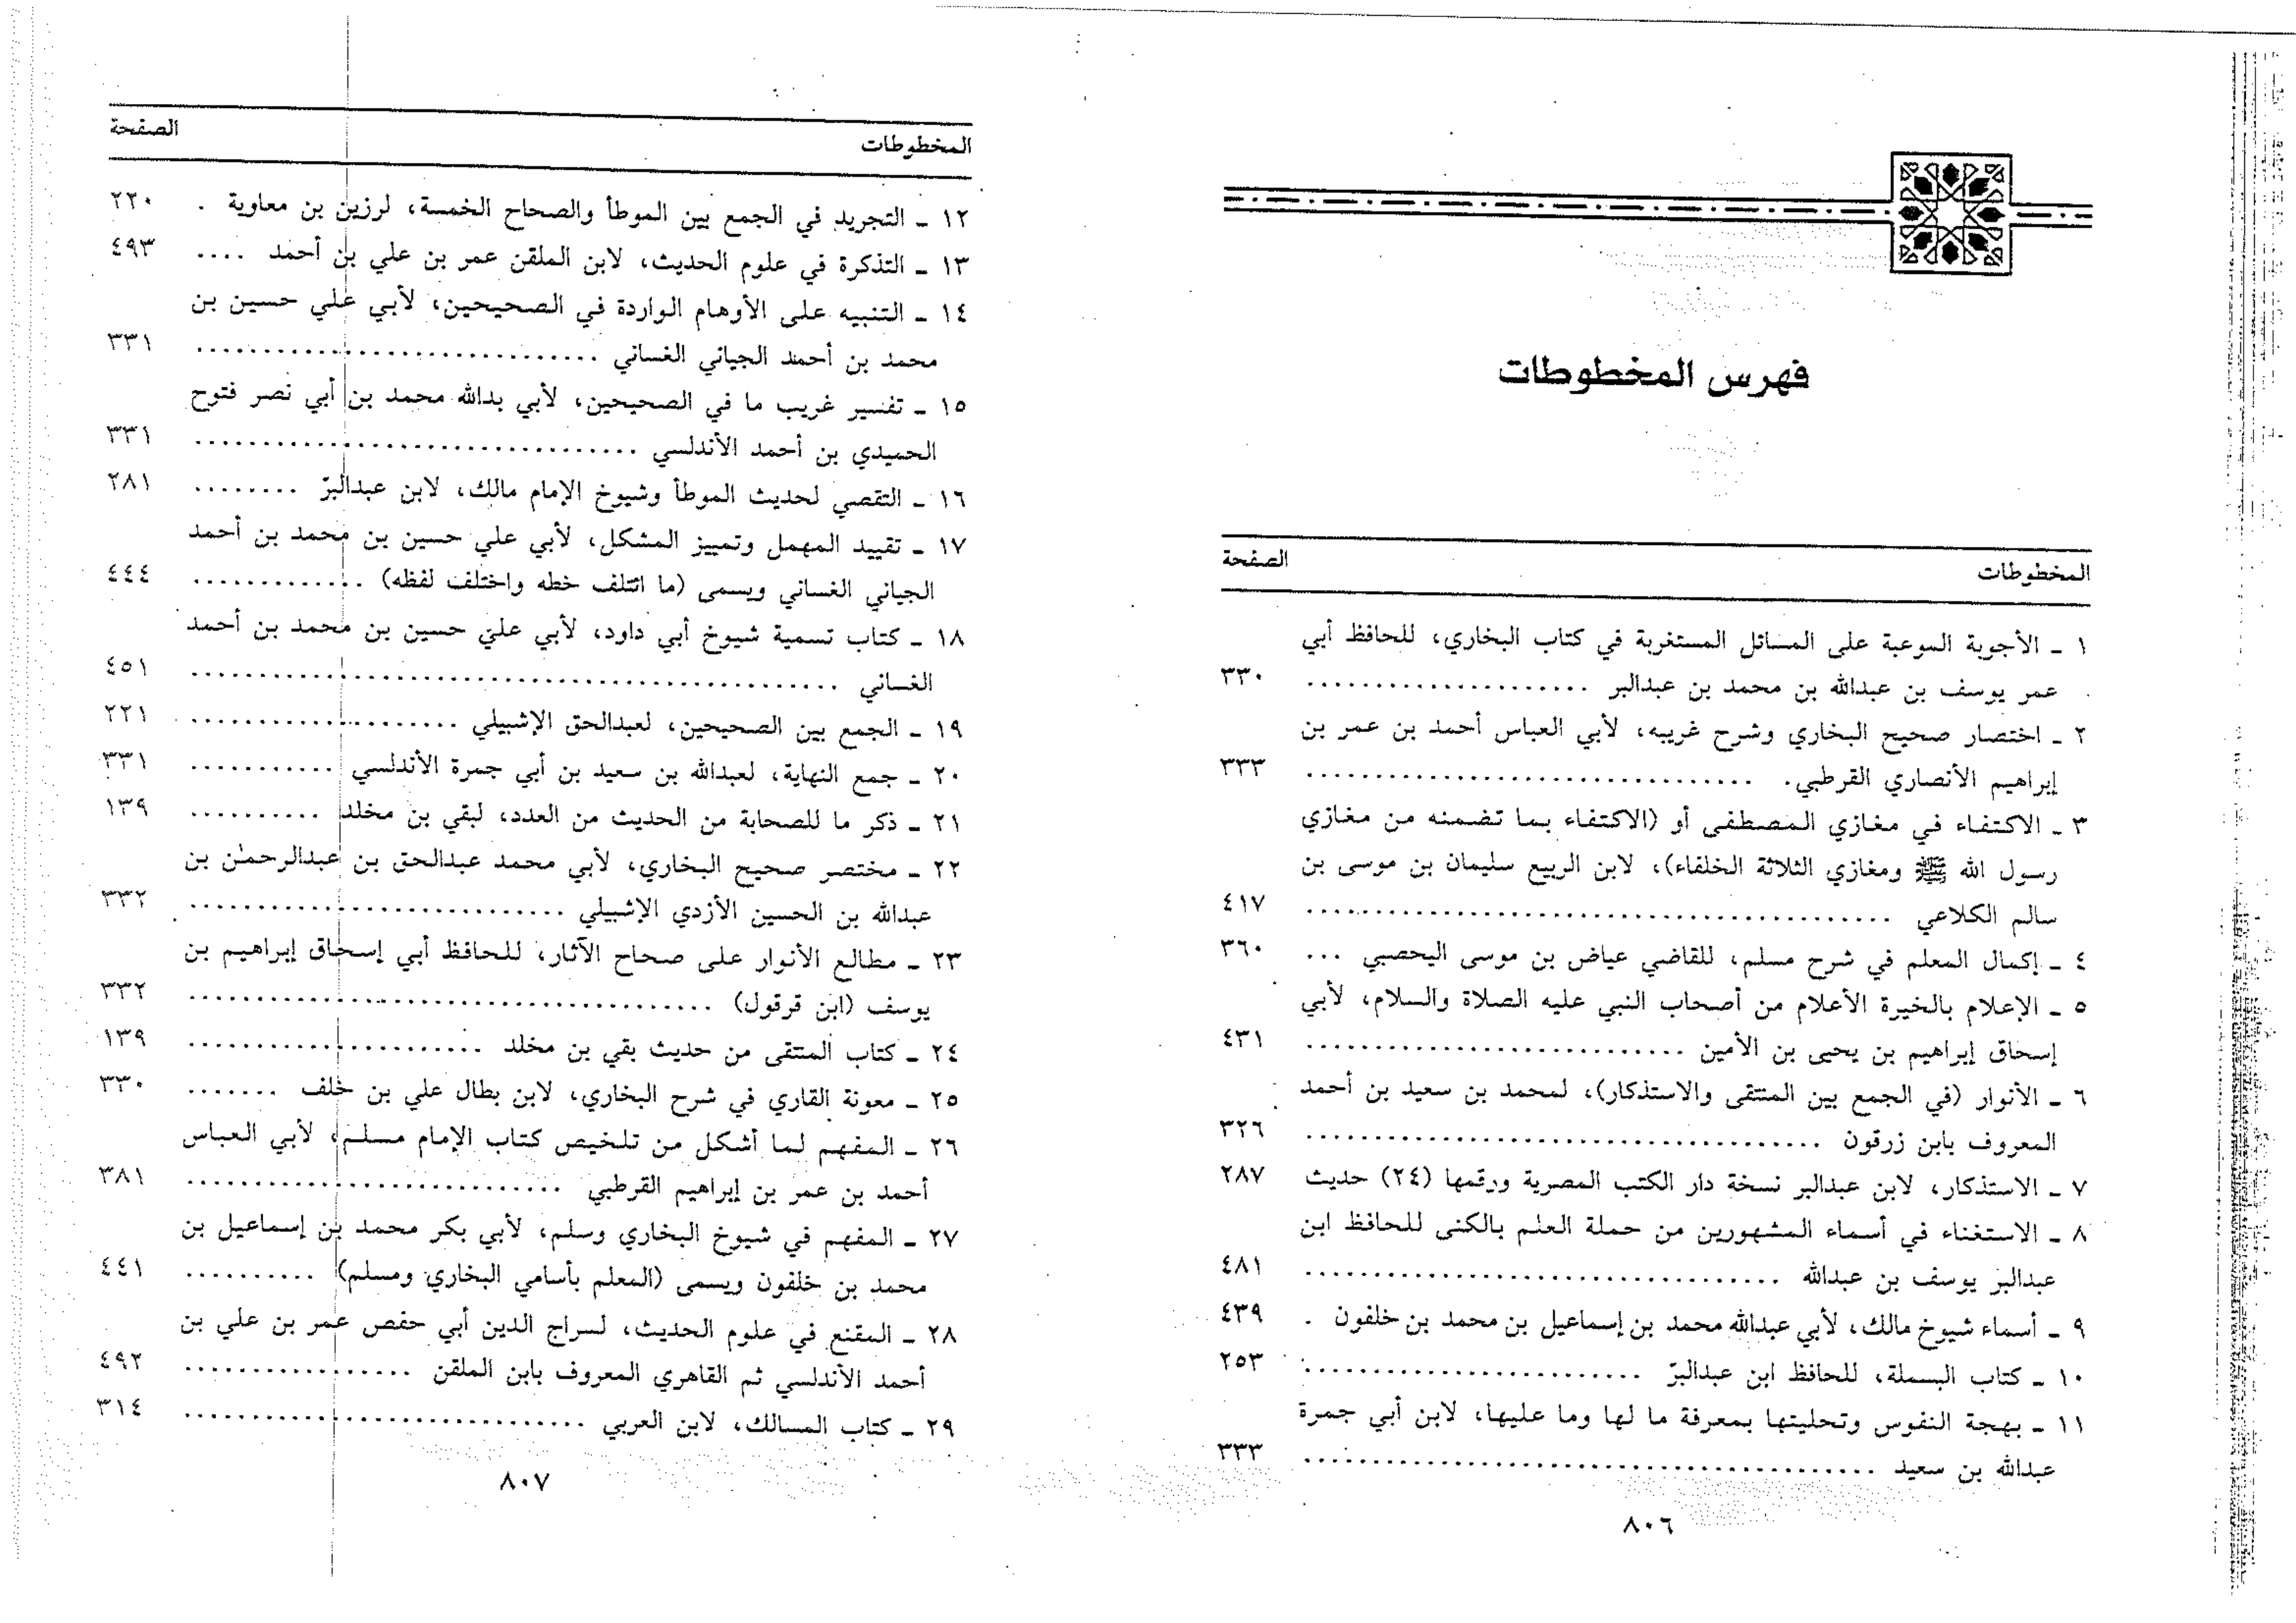 فهرس المخطوطات
المخطوطات الصفحة
١ ـ الأجوبة الموعبة على المسائل المستغربة في كتاب البخاري، للحافظ أبي
عمر يوسف بن عبدالله بن محمد بن عبدالبر ..................... ٣٣٠
٢ ـ اختصار صحيح البخاري وشرح غريبه، لأبي العباس أحمد بن عمر بن
إبراهيم الأنصاري القرطبي. .................................. ٣٣٣
٣ ـ الاكتفاء في مغازي المصطفى أو (الاكتفاء بما تضمنه من مغازي
رسول الله ﷺ ومغازي الثلاثة الخلفاء)، لابن الربيع سليمان بن موسى بن
سالم الكلاعي ........................................... ٤١٧
٤ ـ إكمال المعلم في شرح مسلم، للقاضي عياض بن موسى اليحصبي ... ٣٦٠
٥ ـ الإعلام بالخيرة الأعلام من أصحاب النبي عليه الصلاة والسلام، لأبي
إسحاق إبراهيم بن يحيى بن الأمين ............................ ٤٣١
٦ ـ الأنوار (في الجمع بين المنتقى والاستذكار)، لمحمد بن سعيد بن أحمد
المعروف بابن زرقون ...................................... ٣٢٦
٧ ـ الاستذكار، لابن عبدالبر نسخة دار الكتب المصرية ورقمها (٢٤) حديث ٢٨٧
٨ ـ الاستغناء في أسماء المشهورين من حملة العلم بالكنى للحافظ ابن
عبدالبر يوسف بن عبدالله ................................... ٤٨١
٩ ـ أسماء شيوخ مالك، لأبي عبدالله محمد بن إسماعيل بن محمد بن خلفون . ٤٣٩
١٠ ـ كتاب البسملة، للحافظ ابن عبدالبرّ ......................... ٢٥٣
١١ ـ بهجة النفوس وتحليتها بمعرفة ما لها وما عليها، لابن أبي جمرة
عبدالله بن سعيد .......................................... ٣٣٣
٨٠٦
المخطوطات الصفحة
١٢ ـ التجريد في الجمع بين الموطأ والصحاح الخمسة، لرزين بن معاوية . ٢٢٠
١٣ ـ التذكرة في علوم الحديث، لابن الملقن عمر بن علي بن أحمد .... ٤٩٣
١٤ ـ التنبيه على الأوهام الواردة في الصحيحين، لأبي علي حسين بن
محمد بن أحمد الجياني الغساني .............................. ٣٣١
١٥ ـ تفسير غريب ما في الصحيحين، لأبي بدالله محمد بن أبي نصر فتوح
الحميدي بن أحمد الأندلسي ................................. ٣٣١
١٦ ـ التقصي لحديث الموطأ وشيوخ الإمام مالك، لابن عبدالبرّ ........ ٢٨١
١٧ ـ تقييد المهمل وتمييز المشكل، لأبي علي حسين بن محمد بن أحمد
الجياني الغساني ويسمى (ما ائتلف خطه واختلف لفظه) ............. ٤٤٤
١٨ ـ كتاب تسمية شيوخ أبي داود، لأبي علي حسين بن محمد بن أحمد
الغساني ................................................ ٤٥١
١٩ ـ الجمع بين الصحيحين، لعبدالحق الإشبيلي .................... ٢٢١
٢٠ ـ جمع النهاية، لعبدالله بن سعيد بن أبي جمرة الأندلسي ........... ٣٣١
٢١ ـ ذكر ما للصحابة من الحديث من العدد، لبقي بن مخلد .......... ١٣٩
٢٢ ـ مختصر صحيح البخاري، لأبي محمد عبدالحق بن عبدالرحمٰن بن
عبدالله بن الحسين الأزدي الإشبيلي ............................ ٣٣٢
٢٣ ـ مطالع الأنوار على صحاح الآثار، للحافظ أبي إسحاق إبراهيم بن
يوسف (ابن قرقول) ....................................... ٣٣٢
٢٤ ـ كتاب المنتقى من حديث بقي بن مخلد ...................... ١٣٩
٢٥ ـ معونة القاري في شرح البخاري، لابن بطال علي بن خلف ....... ٣٣٠
٢٦ ـ المفهم لما أشكل من تلخيص كتاب الإمام مسلم، لأبي العباس
أحمد بن عمر بن إبراهيم القرطبي ............................ ٣٨١
٢٧ ـ المفهم في شيوخ البخاري وسلم، لأبي بكر محمد بن إسماعيل بن
محمد بن خلفون ويسمى (المعلم بأسامي البخاري ومسلم) .......... ٤٤١
٢٨ ـ المقنع في علوم الحديث، لسراج الدين أبي حفص عمر بن علي بن
أحمد الأندلسي ثم القاهري المعروف بابن الملقن ................. ٤٩٢
٢٩ ـ كتاب المسالك، لابن العربي .............................. ٣١٤
٨٠٧